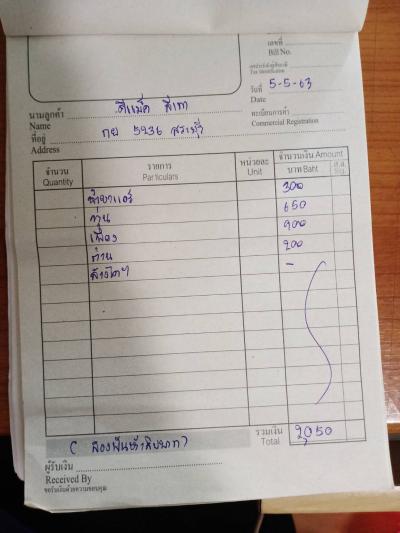 เลขที่
Bill No.
เลขประจำตัวผู้เสียภาษี
Tax Identification
วันที่ 5-5-63
Date
นามลูกค้า ดีแม็ค สีเทา
Name
ทะเบียนการค้า
Commercial Registration
ที่อยู่ กย 5936 สระบุรี
Address
จำนวน รายการ หน่วยละ จำนวนเงิน Amount
Quantity Particulars Unit บาท Baht ส.ต. Stg.
300
650
เฟือง 900
ก้าน 200
-
รวมเงิน 2050
Total
(สองพันห้าสิบบาท)
ผู้รับเงิน
Received By
ขอรับเงินด้วยความขอบคุณ